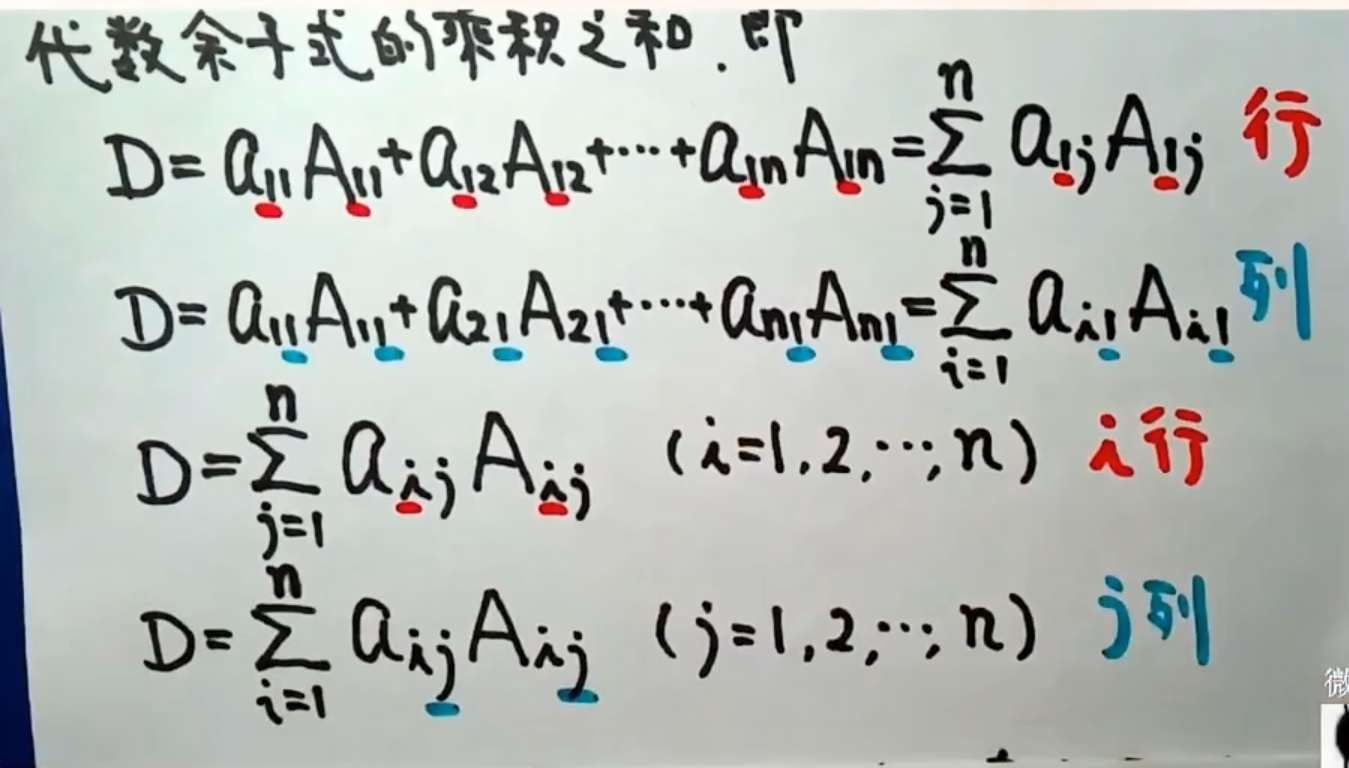 代数余子式的乘积之和.即
D=a₁₁A₁₁+a₁₂A₁₂+···+a₁ₙA₁ₙ=∑ⁿⱼ₌₁ a₁ⱼA₁ⱼ 行
D=a₁₁A₁₁+a₂₁A₂₁+···+aₙ₁Aₙ₁=∑ⁿᵢ₌₁ aᵢ₁Aᵢ₁ 列
D=∑ⁿⱼ₌₁ aᵢⱼAᵢⱼ (i=1,2,···,n) i行
D=∑ⁿᵢ₌₁ aᵢⱼAᵢⱼ (j=1,2,···,n) j列
微